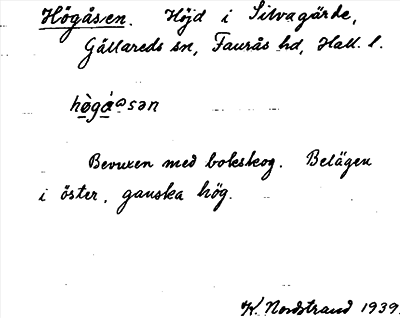 Högåsen. Höjd i Silvagärde,
Gällareds sn, Faurås hd, Hall. l.
hògá͡ɔsən
Bevuxen med bokskog. Belägen
i öster, ganska hög.
K. Nordstrand 1939.